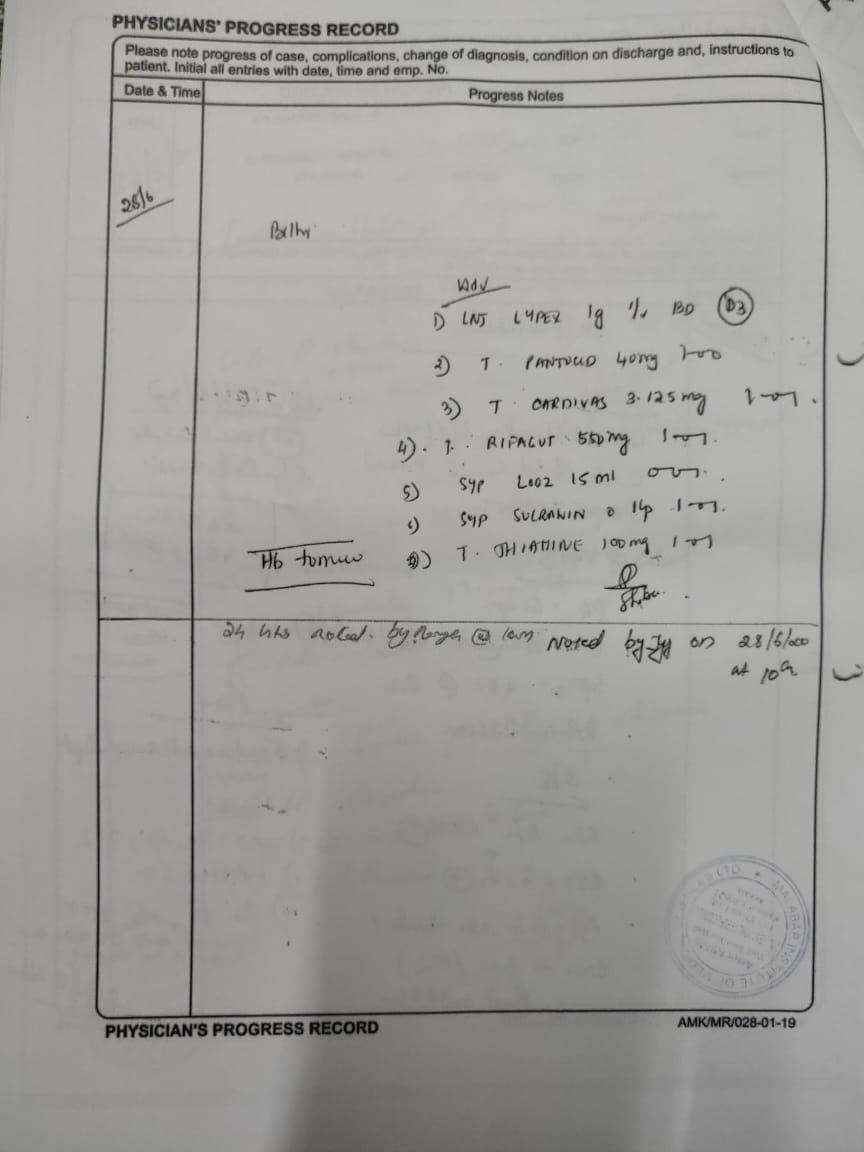 PHYSICIANS' PROGRESS RECORD
Please note progress of case, complications, change of diagnosis, condition on discharge and, instructions to
patient. Initial all entries with date, time and emp. No.
Date & Time
Progress Notes
28/6
Adv
1) INJ LYPEX 1g BD D3
2) T. PANTOCID 40mg 100
3) T. CARDIVAS 3.125mg 1-01.
4). T. RIFAGUT 550mg 101.
5) SYP LOOZ 15ml 001.
6) SYP 101.
7) T. THIAMINE 100mg 101
Hb
24 hrs noted. by @ Noted by on 28/6/
at 10
MALABAR INSTITUTE OF LTD
PHYSICIAN'S PROGRESS RECORD
AMK/MR/028-01-19